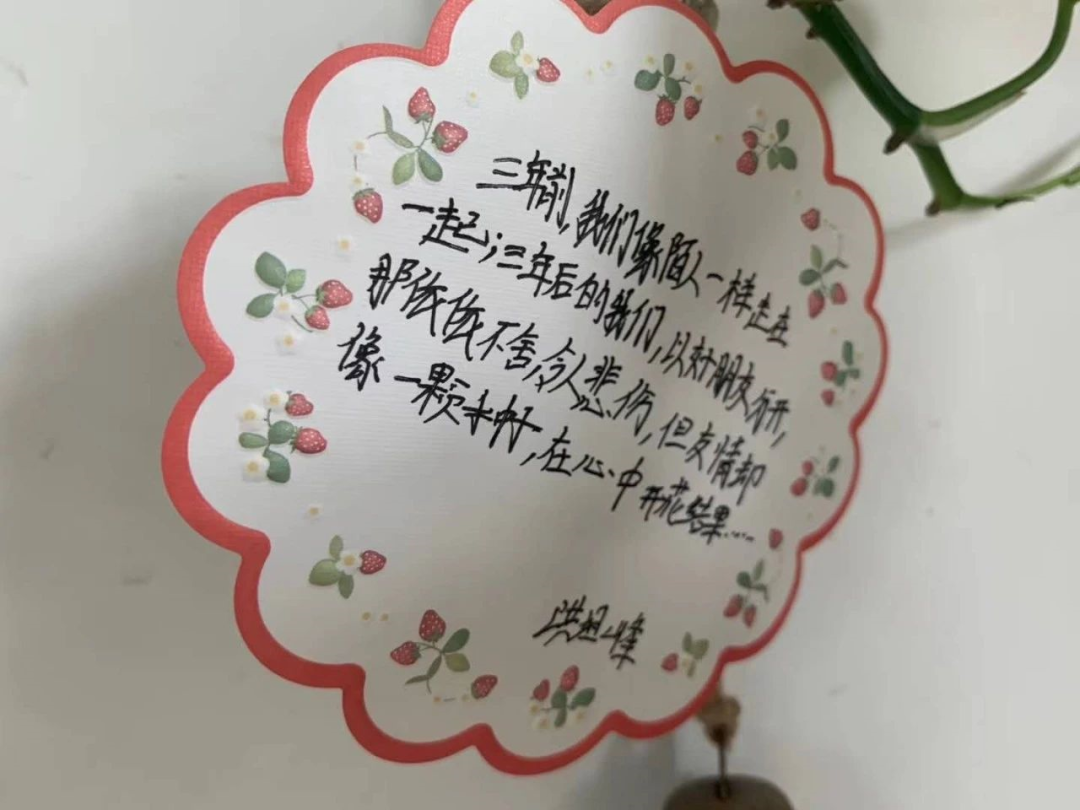 三年前,我们像陌人一样走在
一起;三年后的我们,以好朋友分开,
那依依不舍,令人悲伤,但友情却
像一颗木树,在心中开花结果……
洪旦峰